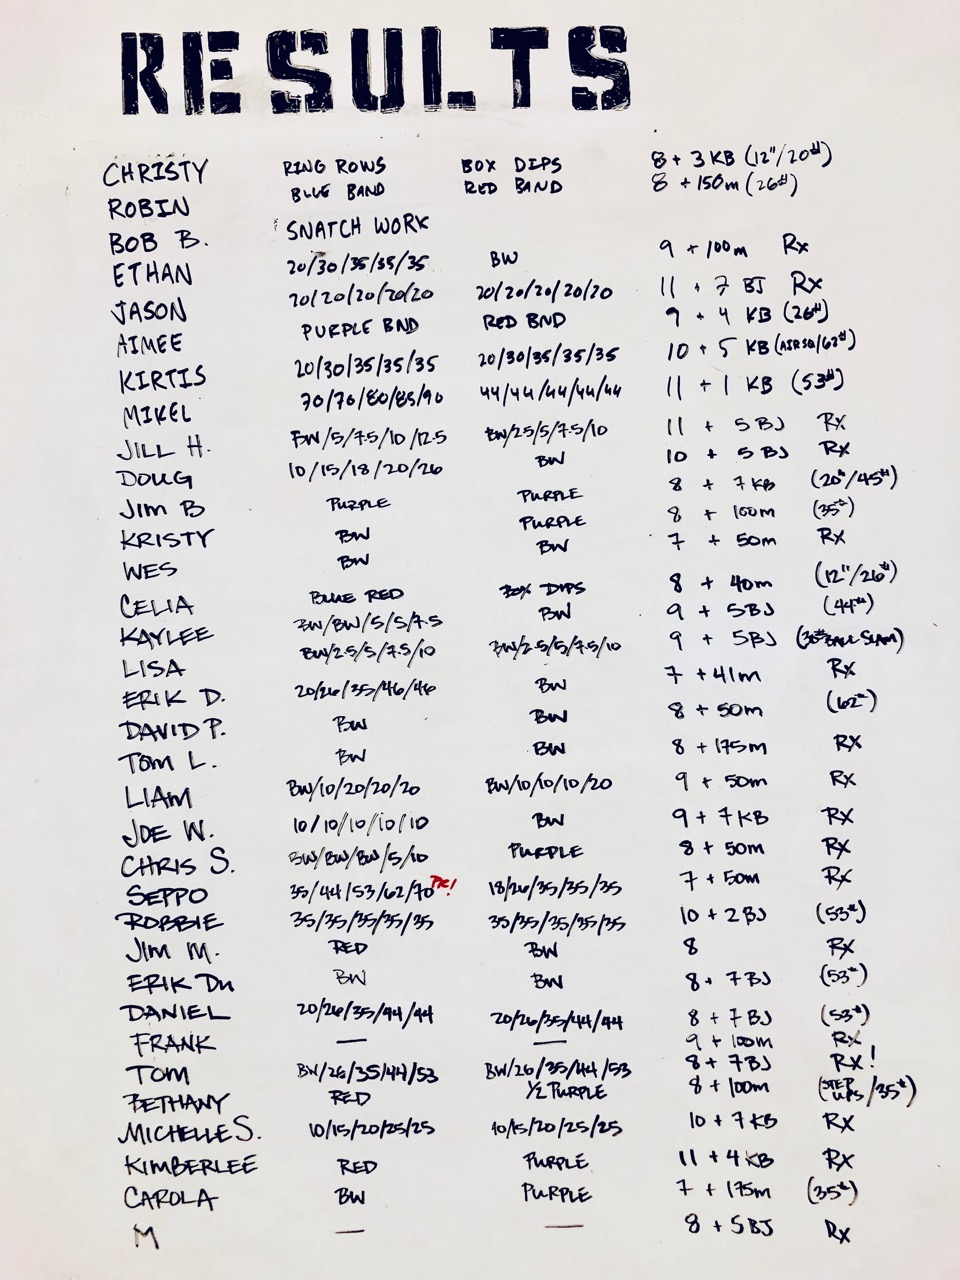 RESULTS
CHRISTY RING ROWS BOX DIPS 8 + 3 KB (12"/20#)
ROBIN BLUE BAND RED BAND 8 + 150m (26#)
BOB B. SNATCH WORK
ETHAN 20/30/35/35/35 BW 9 + 100m Rx
JASON 20/20/20/20/20 20/20/20/20/20 11 + 7 BJ Rx
AIMEE PURPLE BND RED BND 9 + 4 KB (26#)
KIRTIS 20/30/35/35/35 20/30/35/35/35 10 + 5 KB (AIRSQ/62#)
MIKEL 70/70/80/85/90 44/44/44/44/44 11 + 1 KB (53#)
JILL H. BW/5/7.5/10/12.5 BW/2.5/5/7.5/10 11 + 5 BJ Rx
DOUG 10/15/18/20/26 BW 10 + 5 BJ Rx
JIM B PURPLE PURPLE 8 + 7 KB (20"/45#)
KRISTY BW PURPLE 8 + 100m (35#)
WES BW BW 7 + 50m Rx
CELIA BLUE RED BOX DIPS 8 + 40m (12"/26#)
KAYLEE BW/BW/5/5/7.5 BW 9 + 5BJ (44#)
LISA BW/2.5/5/7.5/10 BW/2.5/5/7.5/10 9 + 5BJ (30# BALL SLAM)
ERIK D. 20/26/35/46/46 BW 7 + 41m Rx
DAVID P. BW BW 8 + 50m (62#)
TOM L. BW BW 8 + 175m RX
LIAM BW/10/20/20/20 BW/10/10/10/20 9 + 50m Rx
JOE W. 10/10/10/10/10 BW 9 + 7 KB Rx
CHRIS S. BW/BW/BW/5/10 PURPLE 8 + 50m Rx
SEPPO 35/44/53/62/70 PR! 18/26/35/35/35 7 + 50m Rx
ROBBIE 35/35/35/35/35 35/35/35/35/35 10 + 2 BJ (53#)
JIM M. RED BW 8 Rx
ERIK DU BW BW 8 + 7 BJ (53#)
DANIEL 20/26/35/44/44 20/26/35/44/44 8 + 7 BJ (53#)
FRANK — — 9 + 100m Rx
TOM BW/26/35/44/53 BW/26/35/44/53 8 + 7BJ RX!
BETHANY RED 1/2 PURPLE 8 + 100m (STEP UPS/35#)
MICHELLE S. 10/15/20/25/25 10/15/20/25/25 10 + 7 KB Rx
KIMBERLEE RED PURPLE 11 + 4 KB Rx
CAROLA BW PURPLE 7 + 175m (35#)
M — — 8 + 5BJ Rx